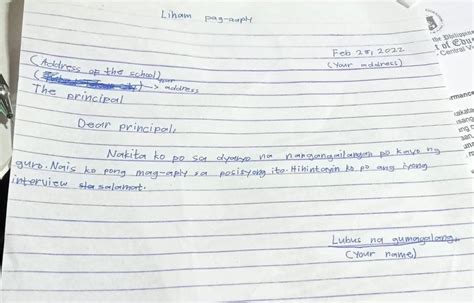 Liham pag-aaply
Feb 28, 2022
(Your address)
(Address of the school)
your
address
The principal
Dear principal,
Nakita ko po sa dyaryo na nangangailangan po kayo ng
guro. Nais ko pong mag-aply sa posisyong ito. Hihintayin ko po ang iyong
interview salamat.
Lubus na gumagalang
(Your name)